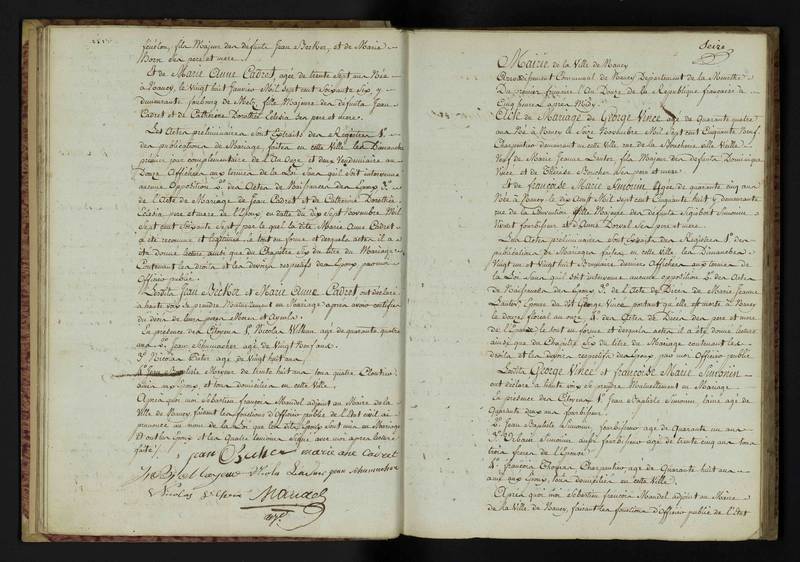 feuston, fils Majeur des defunts Jean Becker, et de Marie
Born ses pere et mere.
Et de Marie Anne Cadret, agée de trente Sept ans Née
à Nancy, le vingt huit Janvier Mil Sept cent Soixante Six, y
demeurante faubourg de Metz, fille Majeure des defunts Jean
Cadret et de Catherine Dorothée ses pere et mere.
Les Actes preliminaires Sont Extraits des Registres 1°
des publications de Mariage, faites en cette Ville les Dimanches
premier jour complementaire de l'An Onze et deux Vendemiaire an
Douze Affichées aux termes de la Loi Sans qu'il soit intervenu
aucune Opposition 2° des Actes de Naissances des Epoux 3°
de l'Acte de Mariage de Jean Cadret et de Catherine Dorothée
pere et mere de l'Epouse en datte du Dix Sept Novembre Mil
Sept cent Soixante Sept, par lequel la dite Marie Anne Cadret
a été reconnue et légitimée, le tout en forme et desquels actes il a
été donné lecture ainsi que du Chapitre Six du titre du Mariage
Contenant les droits et les devoirs respectifs des Epoux par moi
Officier public.
Lesdits Jean Becker et Marie Anne Cadret ont déclaré
à haute voix se prendre Mutuellement en Mariage après avoir certifié
du decès de leurs peres Meres et ayeuls.
En présence des Citoyens 1° Nicolas William agé de quarante quatre
ans 2° Jean Schumacher agé de vingt huit ans
3° Nicolas agé de Vingt huit ans
4° Jean Baptiste de trente huit ans tous quatre
amis aux Epoux, et tous domiciliés en cette Ville.
Après quoi moi Sébastien françois Mandel adjoint au Maire de la
Ville de Nancy, faisant les fonctions d'Officier public de l'Etat civil ai
prononcé au nom de la Loi que les dits Epoux sont unis en Mariage
Et ont les Epoux et les Quatre temoins Signé avec moi après lecture
faite
Jean Becker marie ane Cadret
Nicolas
Mandel
adjt.
Seize
Mairie de la Ville de Nancy
Arrondissement Communal de Nancy Departement de la Meurthe
Du premier frimaire l'An Douze de la Republique française à
Cinq heures après Midy.
Acte de Mariage de George Vincé agé de Quarante quatre
ans Né à Nancy le Seize Novembre Mil Sept cent Cinquante Neuf
Charpentier demeurant en cette Ville rue de la Boucherie ville Vieille
Veuf de Marie Jeanne Lautor fils Majeur des defunts Dominique
Vincé et de Thérèse Boucher ses pere et mere.
Et de françoise Marie Simonin Agée de quarante cinq ans
Née à Nancy, le dix Août Mil Sept cent Cinquante huit y demeurante
rue de la Convention fille Majeure des defunts Sigisbert Simonin
Vivant fourbisseur et d'Anne Dorval ses pere et mere.
Les Actes preliminaires sont Extraits des Registres 1° des
publications de Mariages faites en cette Ville les Dimanches
Vingt un et Vingt huit Brumaire dernier Affichées aux termes de
la Loi Sans qu'il soit intervenu aucune opposition 2° des Actes
de Naissances des Epoux 3° de l'Acte de Décès de Marie Jeanne
Lautor, Epouse du dit George Vincé portant qu'elle est morte à Nancy
le douze floréal an onze 4° des Actes de Décès des pere et mere
de l'Epouse le tout en forme et desquels actes il a été donné lecture
ainsi que du Chapitre Six du titre du Mariage contenant les
droits et les devoirs respectifs des Epoux par moi Officier public
Lesdits George Vincé et françoise Marie Simonin
ont déclaré à haute voix se prendre Mutuellement en Mariage
En présence des Citoyens 1° Jean Baptiste Simonin l'ainé agé de
Quarante deux ans fourbisseur
2° Jean Baptiste Simonin, fourbisseur agé de Quarante un ans
3° Simonin aussi fourbisseur agé de trente cinq ans tous
trois freres de l'Epouse
4° françois Thouvenin Charpentier agé de Quarante huit ans
ami aux Epoux, tous domiciliés en cette Ville.
Après quoi moi Sébastien françois Mandel adjoint au Maire
de la Ville de Nancy, faisant les fonctions d'Officier public de l'Etat